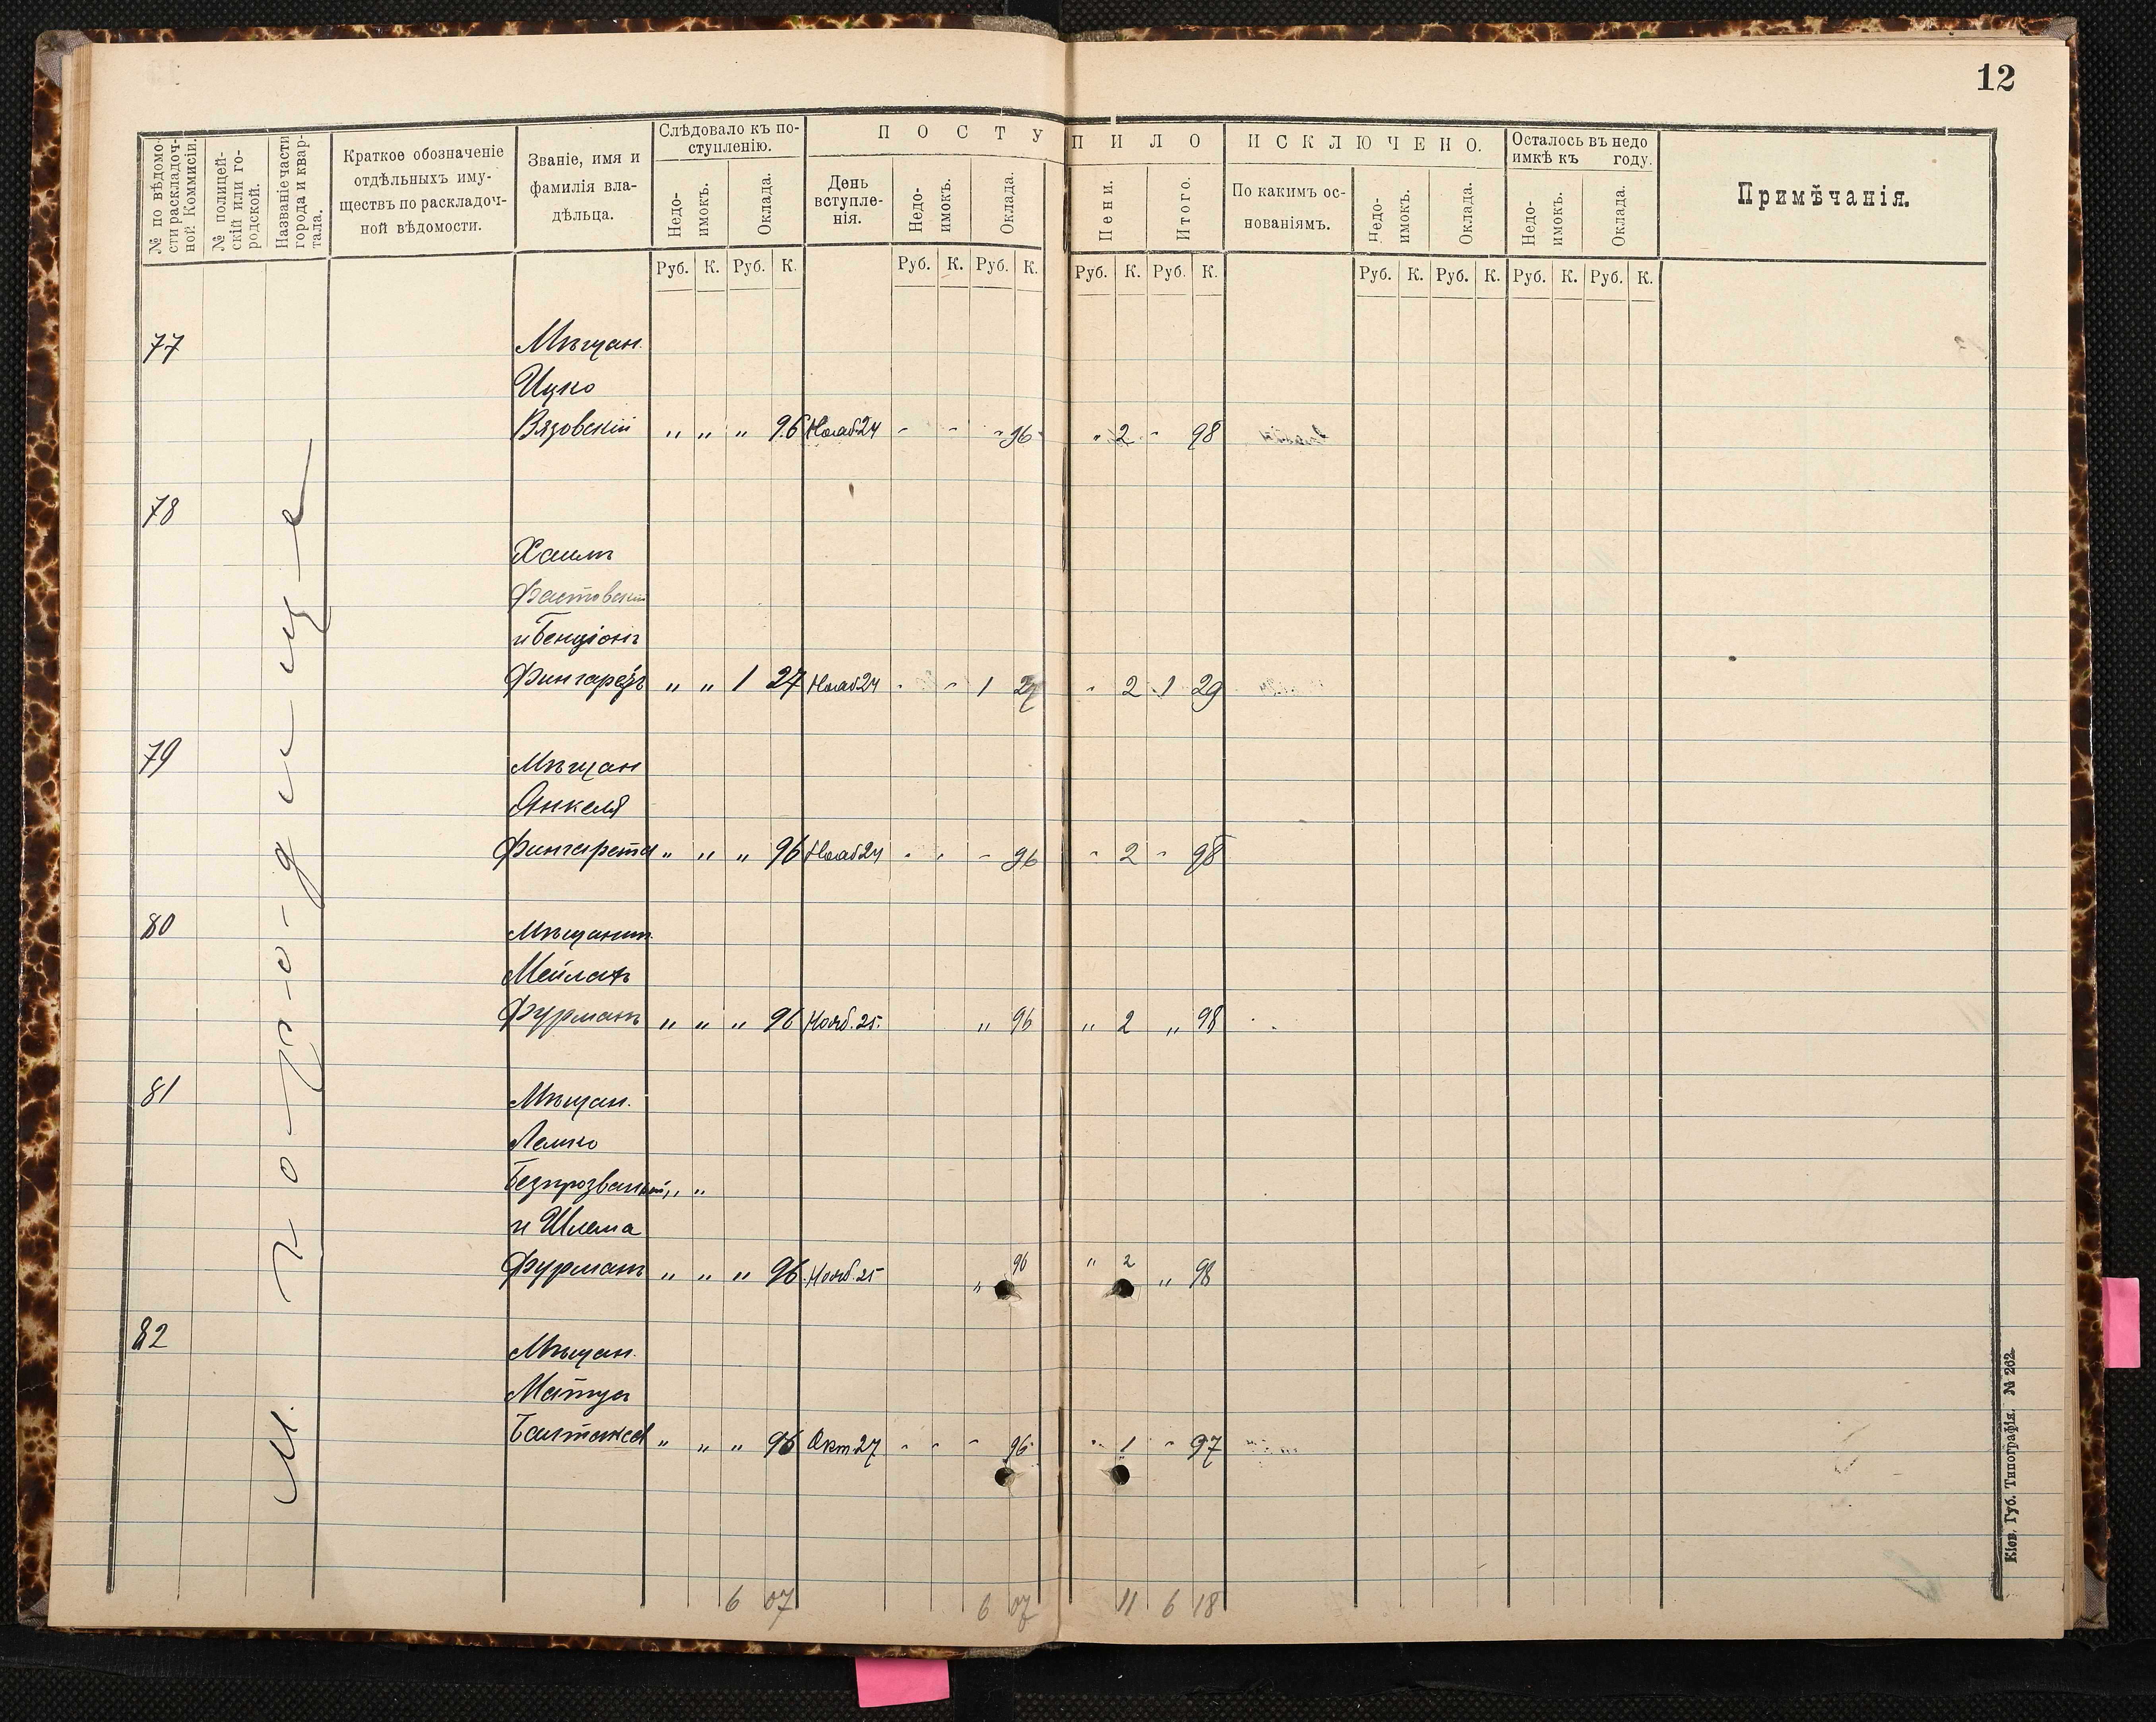 12
№ по вѣдомо-
сти раскладоч-
ной Коммисіи.
№ полицей-
скій или го-
родской.
Названіе части
города и квар-
тала.
Краткое обозначеніе
отдѣльныхъ иму-
ществъ по раскладоч-
ной вѣдомости.
Званіе, имя и
фамилія вла-
дѣльца.
Слѣдовало къ по-
ступленію.
Недо-
имокъ.
Оклада.
ПОСТУПИЛО
День
вступле-
нія.
Недо-
имокъ.
Оклада.
Пени.
Итого.
ИСКЛЮЧЕНО.
По какимъ ос-
нованіямъ.
Недо-
имокъ.
Оклада.
Осталось въ недо
имкѣ къ году.
Недо-
имокъ.
Оклада.
Примѣчанія.
Руб. К. Руб. К. Руб. К. Руб. К. Руб. К. Руб. К. Руб. К. Руб. К. Руб. К. Руб. К.
м. Городище
77 Мѣщан.
Ицко
Вязовскій „ „ „ 96 Нояб 24 - - - 96 „ 2 - 98
78
Хаимъ
Фастовскій
и Бенціонъ
Фингаретъ „ „ 1 27 Нояб 24 - - 1 27 - 2 1 29
79 Мѣщан
Янкель
Фингаретъ „ „ „ 96 Нояб 24 - - - 96 - 2 - 98
80 Мѣщанин.
Мейлахъ
Фурманъ „ „ „ 96 Нояб. 25. „ 96 „ 2 „ 98
81 Мѣщан.
Лейко
Безпрозванный „ „
и Шлема
Фурманъ „ „ „ 96 Нояб. 25 „ 96 „ 2 „ 98
82 Мѣщан.
Матус
„ „ „ 96 Окт 27 - - - 96 - 1 - 97
6 07 6 07 11 6 18
Кіев. Губ. Типографія. № 262.